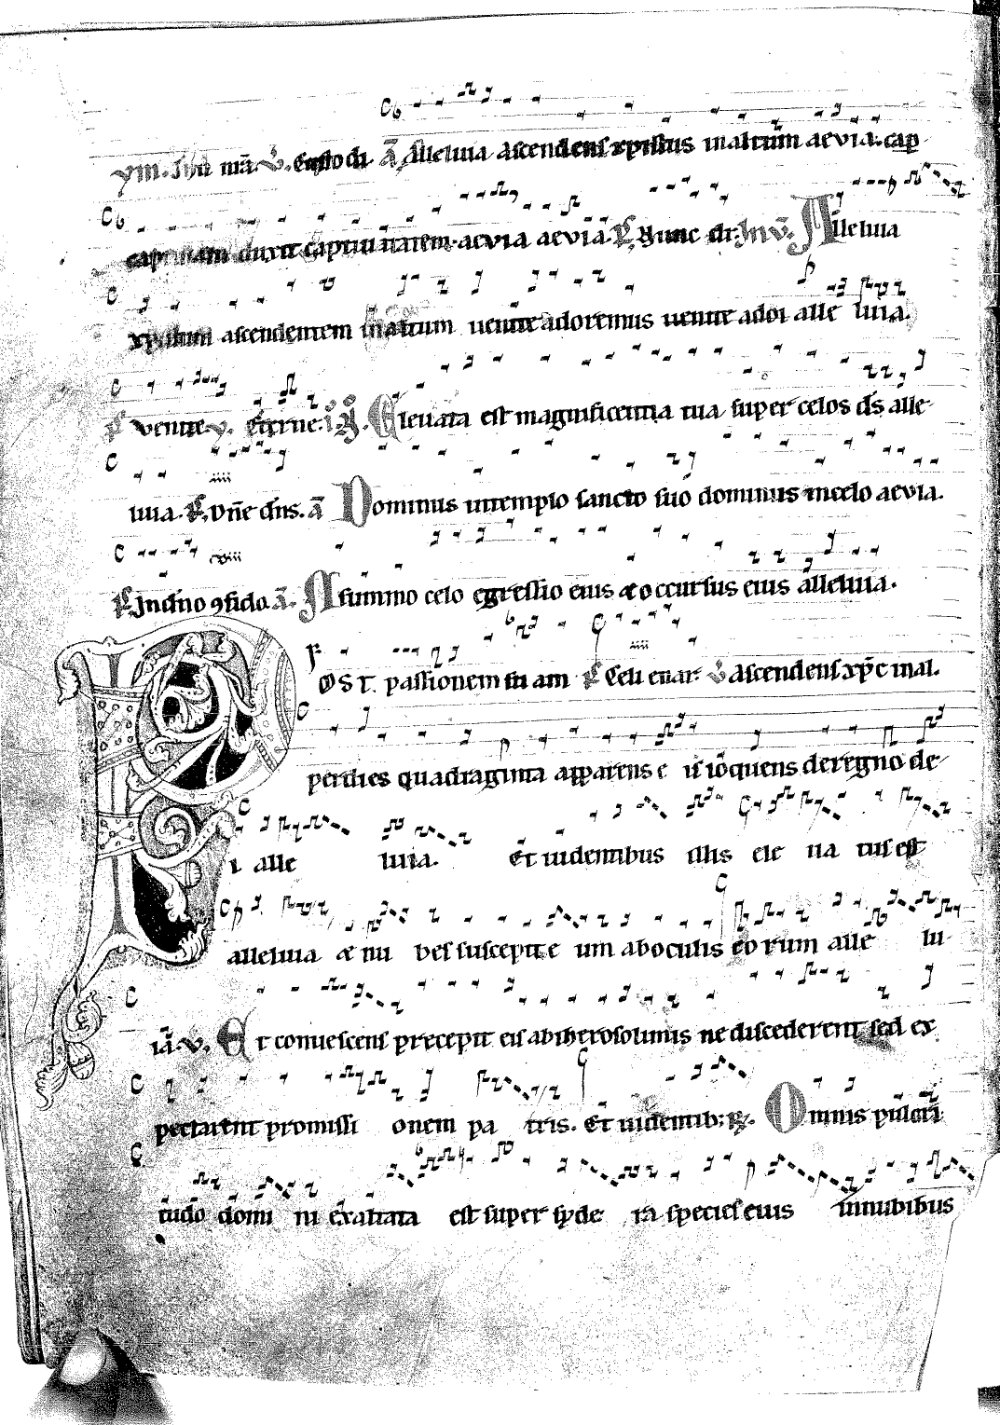 ym. Ihu nr̄a. V. Custodi. ā Alleluia Ascendens xpistus inaltum aevia. cap
captiuam duxit captiuitatem. aevia aevia. R, Nunc dī: Inv. Alleluia
xpistum ascendentem inaltum uenite adoremus uenite adoi alle luia.
P Venite. y. Eterne. i. N. A. Eleuata est magnificentia tua super celos ds alle
luia. P, Dñe dns. ā Dominus intemplo sancto suo dominus incelo aevia.
P Indño 9fido. ā. A summo celo egressio eius & occursus eius alleluia.
POST passionem su am P Celi enar. V Ascendens xpc inal.
perdies quadraginta apparens e is loquens deregno de
i alle luia. Et uidentibus illis ele ua tus est
alleluia & nu bes suscepit e um aboculis eo rum alle lu
iā. V. Et conuescens precepit eis abiherosolimis ne discederent sed ex
pectarent promissi onem pa tris. Et uidentib; R. Omnis pulcri
tudo domi ni exaltata est super syde ra species eius innubibus